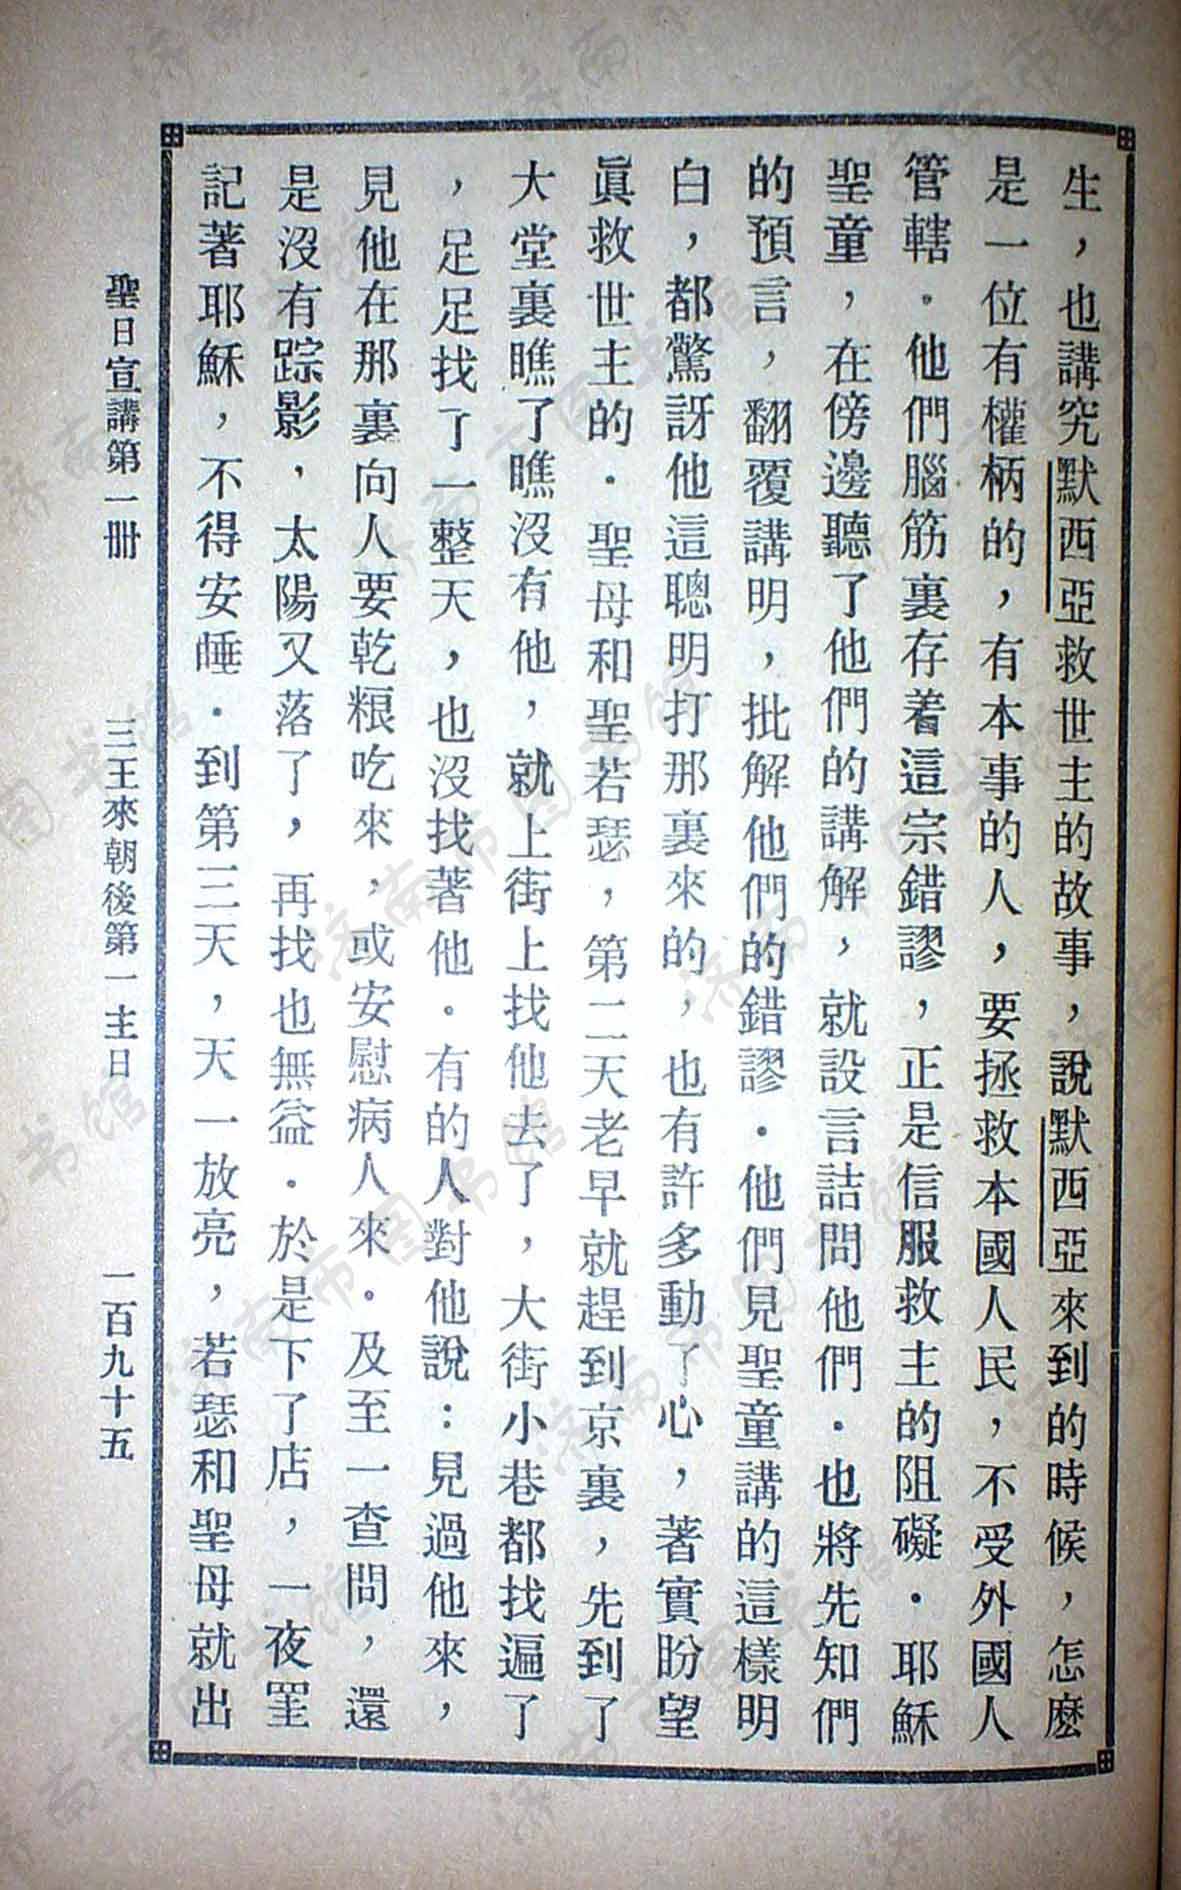 生，也講究默西亞救世主的故事，說默西亞來到的時候，怎麽
是一位有權柄的，有本事的人，要拯救本國人民，不受外國人
管轄．他們腦筋裏存着這宗錯謬，正是信服救主的阻礙．耶穌
聖童，在傍邊聽了他們的講解，就設言詰問他們．也將先知們
的預言，翻覆講明，批解他們的錯謬．他們見聖童講的這樣明
白，都驚訝他這聰明打那裏來的，也有許多動了心，著實盼望
眞救世主的．聖母和聖若瑟，第二天老早就趕到京裏，先到了
大堂裏瞧了瞧沒有他，就上街上找他去了，大街小巷都找遍了
，足足找了一整天，也沒找著他．有的人對他說：見過他來，
見他在那裏向人要乾粮吃來，或安慰病人來．及至一查問，還
是沒有踪影，太陽又落了，再找也無益．於是下了店，一夜罣
記著耶穌，不得安睡．到第三天，天一放亮，若瑟和聖母就出
聖日宣講第一冊　三王來朝後第一主日　一百九十五
济南市图书馆